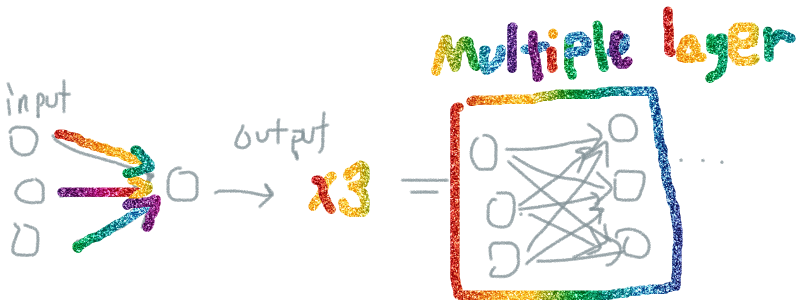 multiple layer
input
output
x3
=
...